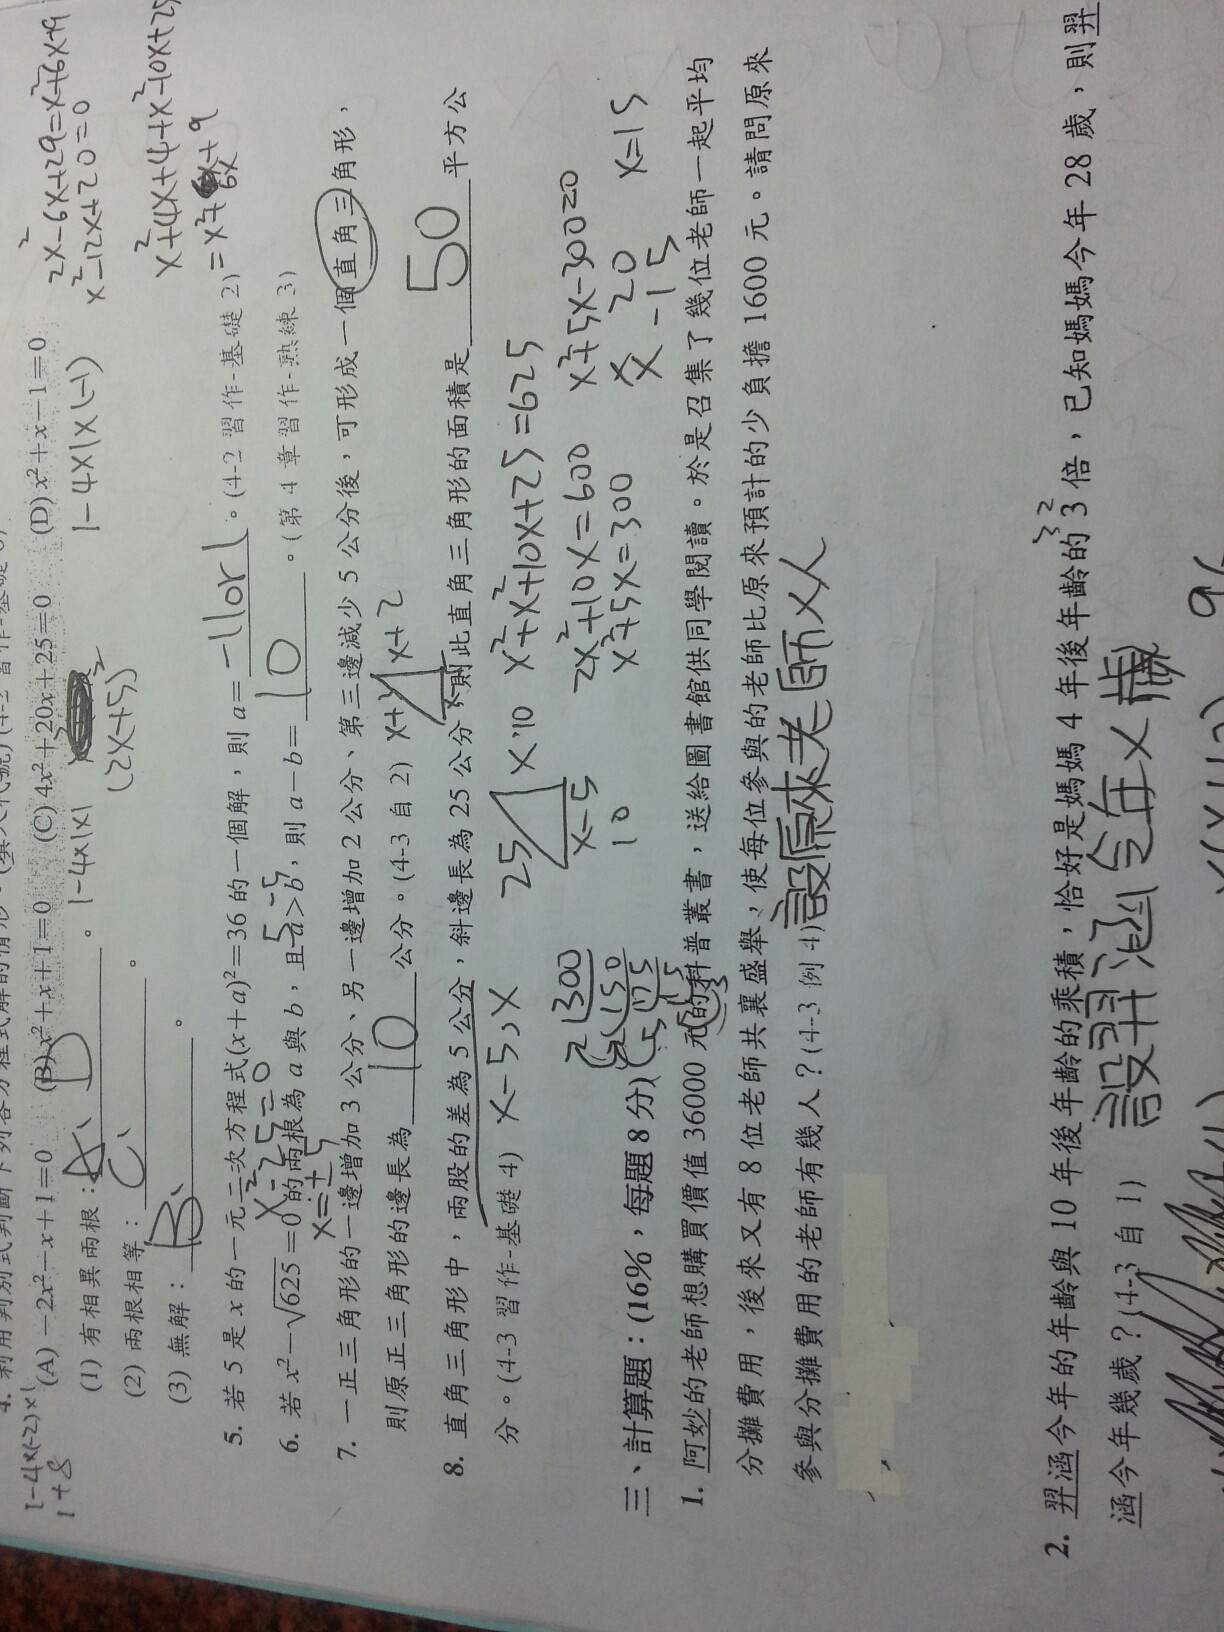 4. 利用判別式判斷下列各方程式解的情形。(填入代號)(4-2 習作-基礎
1-4×(-2)×1
1+8
(A) −2x²−x+1=0 (B) x²+x+1=0 (C) 4x²+20x+25=0 (D) x²+x−1=0
(1) 有相異兩根：A、D。
1-4×1×1
(2x+5)²
1-4×1×(-1)
(2) 兩根相等：C、。
(3) 無解：B、。
2x²-6x+29=x²+6x+9
x²-12x+20=0
x²+4x+4+x²-10x+25
=x²+6x+9
5. 若 5 是 x 的一元二次方程式(x+a)²=36 的一個解，則 a=-11or1。(4-2 習作-基礎 2)
x²-25=0
6. 若 x²−√625=0 的兩根為 a 與 b，且 a>b，則 a−b=10。(第 4 章習作-熟練 3)
5 -5
x=±5
7. 一正三角形的一邊增加 3 公分、另一邊增加 2 公分、第三邊減少 5 公分後，可形成一個直角三角形，
則原正三角形的邊長為10公分。(4-3 自 2)
x+3 x+2
x-5
8. 直角三角形中，兩股的差為 5 公分，斜邊長為 25 公分，則此直角三角形的面積是50平方公
分。(4-3 習作-基礎 4)
x-5, x
25 x
x-5
10
x²+x²+10x+25=625
2x²+10x=600
x²+5x=300
x²+5x-300=0
x 20
x -15
x=15
2 300
150
75
三、計算題：(16%，每題 8 分)
1. 阿妙的老師想購買價值 36000 元的科普叢書，送給圖書館供同學閱讀。於是召集了幾位老師一起平均
分攤費用，後來又有 8 位老師共襄盛舉，使每位參與的老師比原來預計的少負擔 1600 元。請問原來
參與分攤費用的老師有幾人？(4-3 例 4)
設原來老師x人
2. 羿涵今年的年齡與 10 年後年齡的乘積，恰好是媽媽 4 年後年齡的 3 倍，已知媽媽今年 28 歲，則羿
32
涵今年幾歲？(4-3 自 1)
設羿涵今年x歲
96